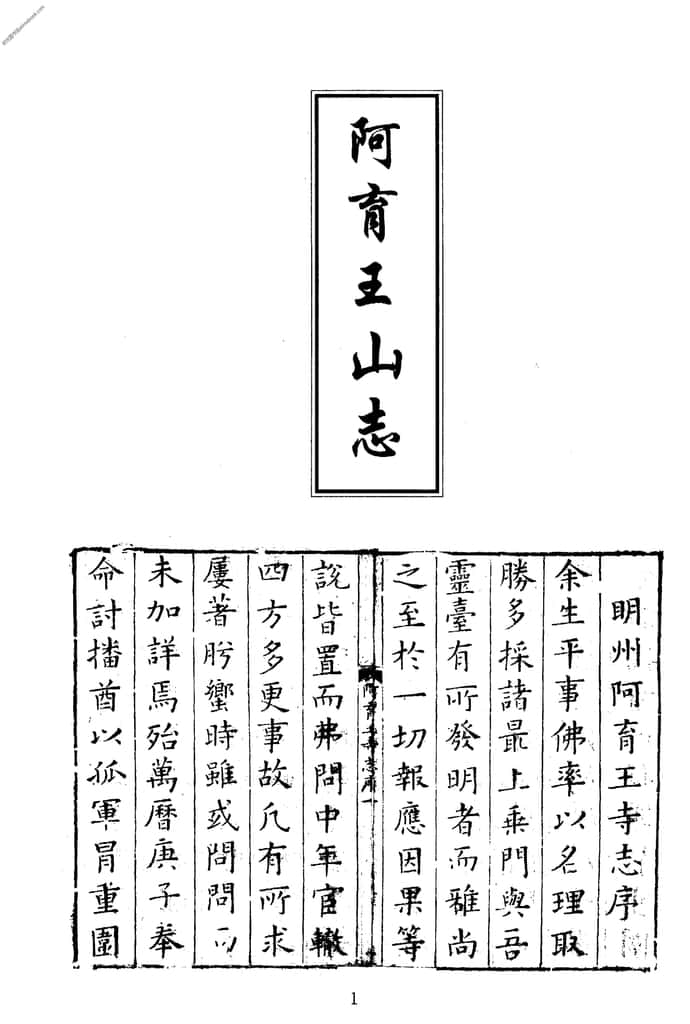 阿育王山志
明州阿育王寺志序
余生平事佛率以名理取
勝多採諸最上乗門與吾
靈臺有所發明者而雅尚
之至於一切報應因果等
說皆置而弗問中年宦轍
四方多更事故凡有所求
屢著肹蠁時雖或問問而
未加詳焉殆萬曆庚子奉
命討播酋以孤軍冐重圍
1